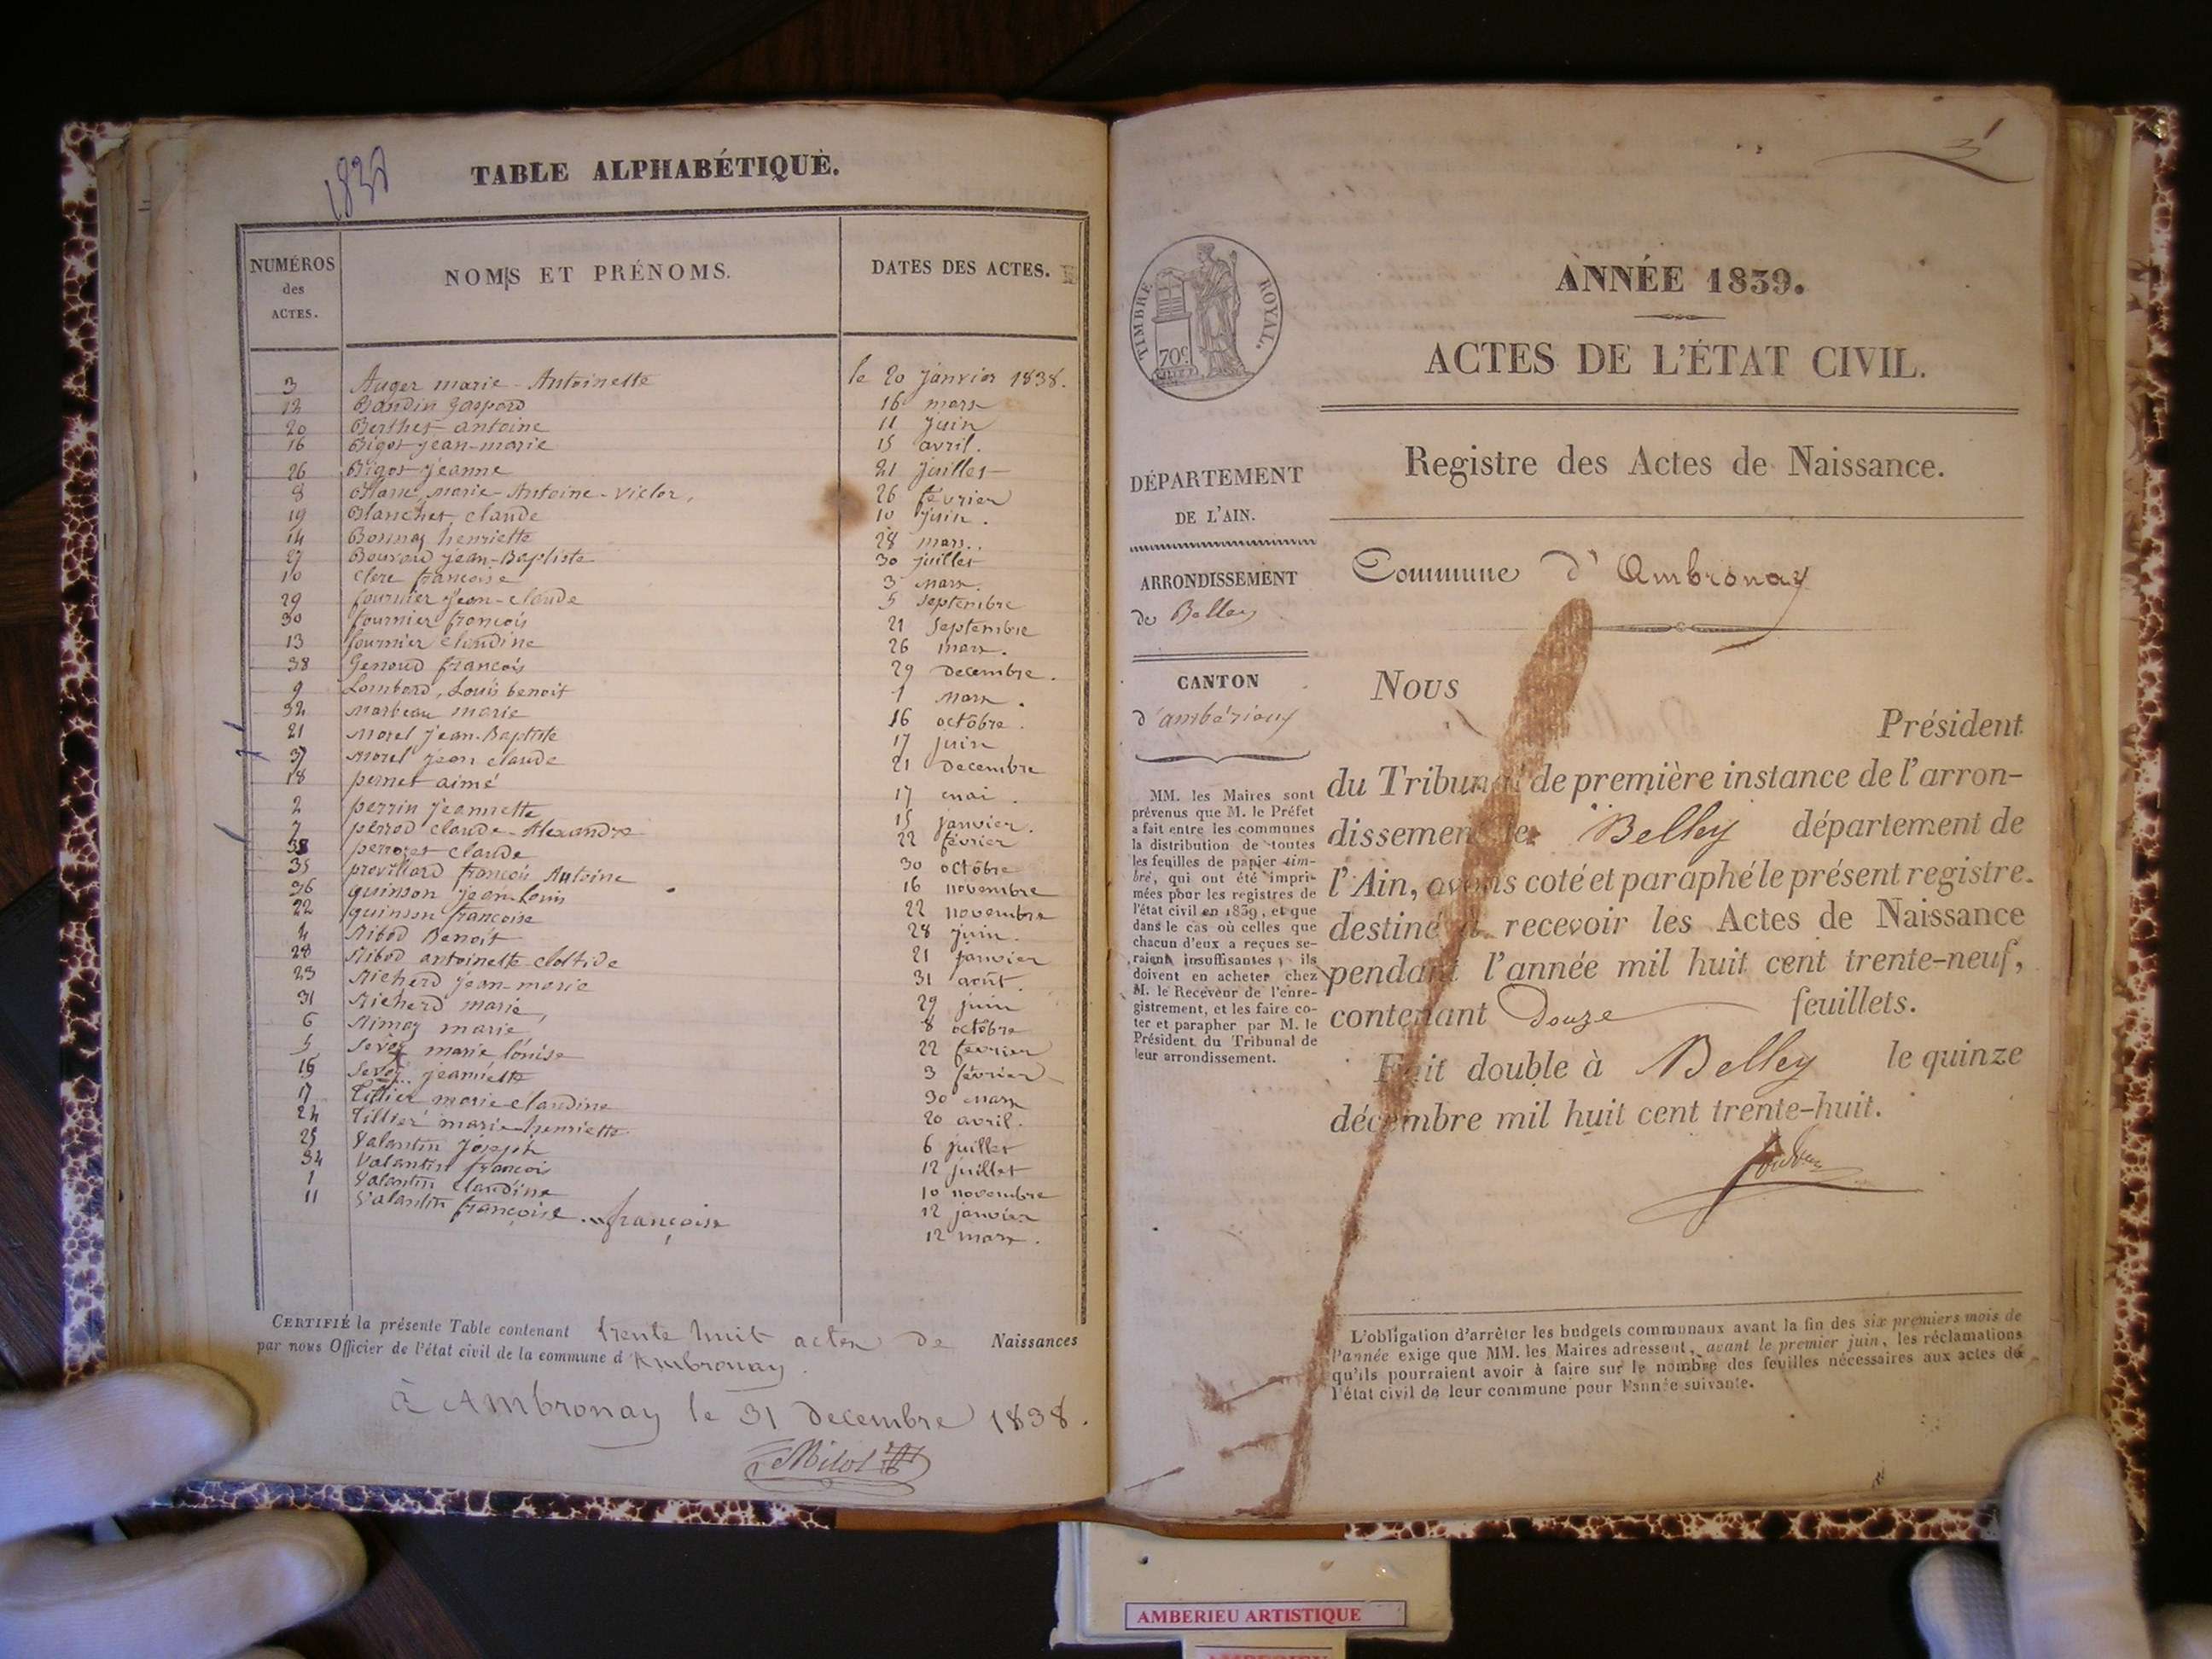 1838
TABLE ALPHABÉTIQUE.
NUMÉROS
des
ACTES.
NOMS ET PRÉNOMS.
DATES DES ACTES.
3 Auger marie-Antoinette le 20 janvier 1838.
12 Baudin gaspard 16 mars
20 Berthet antoine 11 juin
16 Bigot jean-marie 15 avril.
26 Bigot jeanne 21 juillet
8 marie-Antoine-victor, 26 février
19 Blanchet, claude 10 juin.
14 Bonnaz henriette 28 mars.
27 Bouvard jean-Baptiste 30 juillet
10 Clerc francoise 3 mars
29 fournier jean-claude 5 septembre
30 fournier francois 21 septembre
13 fournier claudine 26 mars.
38 Genoud francois 29 decembre.
9 Lombard, Louis benoit 1 mars.
32 marbeau marie 16 octôbre.
21 morel jean-Baptiste 17 juin
37 morel jean claude 21 decembre
18 pernet aimé 17 mai.
2 perrin jeannette 15 janvier.
7 perrod claude-Alexandre 22 février
33 claude 30 octôbre
35 provillard francois Antoine 16 novembre
36 quinson jean-louis 22 novembre
22 quinson francoise 28 juin.
4 Ribod Benoit 21 janvier
28 Ribod antoinette-cloltide 31 août.
23 Richerd jean-marie 29 juin
31 Richerd marie, 8 octôbre
6 Rimaz marie, 22 février
5 Sevoz marie lôuise 3 février
15 Sevoz jeannette 30 mars
17 Tillier marie claudine 20 avril.
24 Tillier marie-henriette 6 juillet
25 Valantin joseph 12 juillet
34 Valantin francois 10 novembre
1 Valantin claudine 12 janvier
11 Valantin françoise... françoise 12 mars.
CERTIFIÉ la présente Table contenant trente huit actes de Naissances
par nous Officier de l'état civil de la commune d'Ambronay
à Ambronay le 31 decembre 1838.
1
ANNÉE 1839.
ACTES DE L'ÉTAT CIVIL.
TIMBRE ROYAL.
70c
Registre des Actes de Naissance.
DÉPARTEMENT
DE L'AIN.
ARRONDISSEMENT
de Belley
CANTON
d'ambérieux
MM. les Maires sont
prévenus que M. le Préfet
a fait entre les communes
la distribution de toutes
les feuilles de papier tim-
bré, qui ont été impri-
mées pour les registres de
l'état civil en 1839, et que
dans le cas où celles que
chacun d'eux a reçues se-
raient insuffisantes, ils
doivent en acheter chez
M. le Receveur de l'enre-
gistrement, et les faire co-
ter et parapher par M. le
Président du Tribunal de
leur arrondissement.
Commune d'Ambronay
Nous
Président
du Tribunal de première instance de l'arron-
dissement de Belley département de
l'Ain, avons coté et paraphé le présent registre
destiné à recevoir les Actes de Naissance
pendant l'année mil huit cent trente-neuf,
contenant Douze feuillets.
Fait double à Belley le quinze
décembre mil huit cent trente-huit.
L'obligation d'arrêter les budgets communaux avant la fin des six premiers mois de
l'année exige que MM. les Maires adressent, avant le premier juin, les réclamations
qu'ils pourraient avoir à faire sur le nombre des feuilles nécessaires aux actes de
l'état civil de leur commune pour l'année suivante.
AMBERIEU ARTISTIQUE